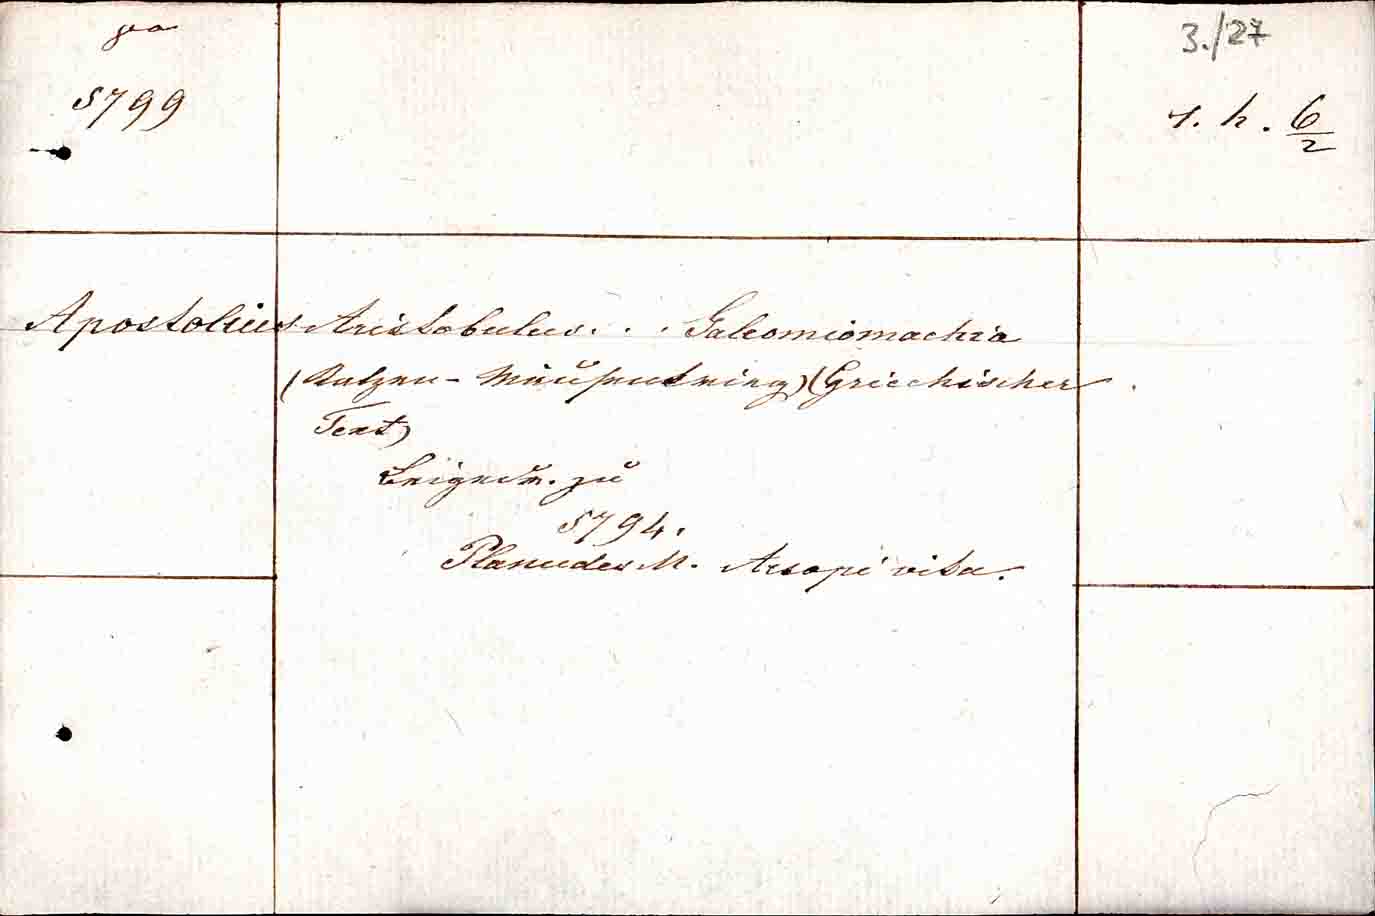 3./27
5799
1. h. 6/2
Apostolius Aristobulus. . . Galeomiomachia
(Katzen-Mäusekrieg) (Griechischer
Text)
Beigeb. zu
5794.
Planudes M. Aesopi vita.